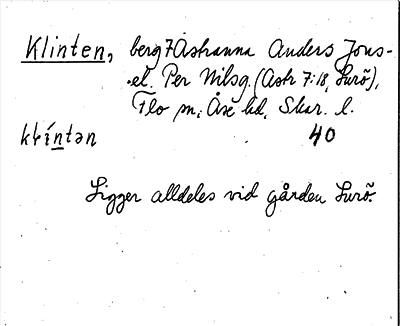 Klinten, berg 7 Åshanna Anders Jons-
el. Per Nilsg. (Astr 7:18, Surö),
Flo sn, Åse hd, Skar. l.
klíntən 40
Ligger alldeles vid gården Surö.